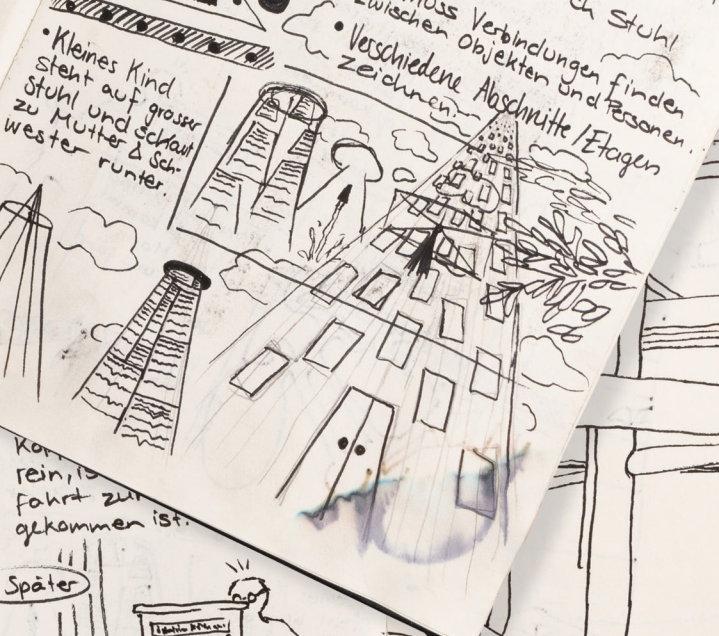 ch Stuhl
Verbindungen finden
zwischen Objekten und Personen.
• Verschiedene Abschnitte/Etagen
zeichnen.
• Kleines Kind
steht auf grosser
Stuhl und schaut
zu Mutter & Sch-
wester runter.
rein, is
fahrt zur
gekommen ist.
Später